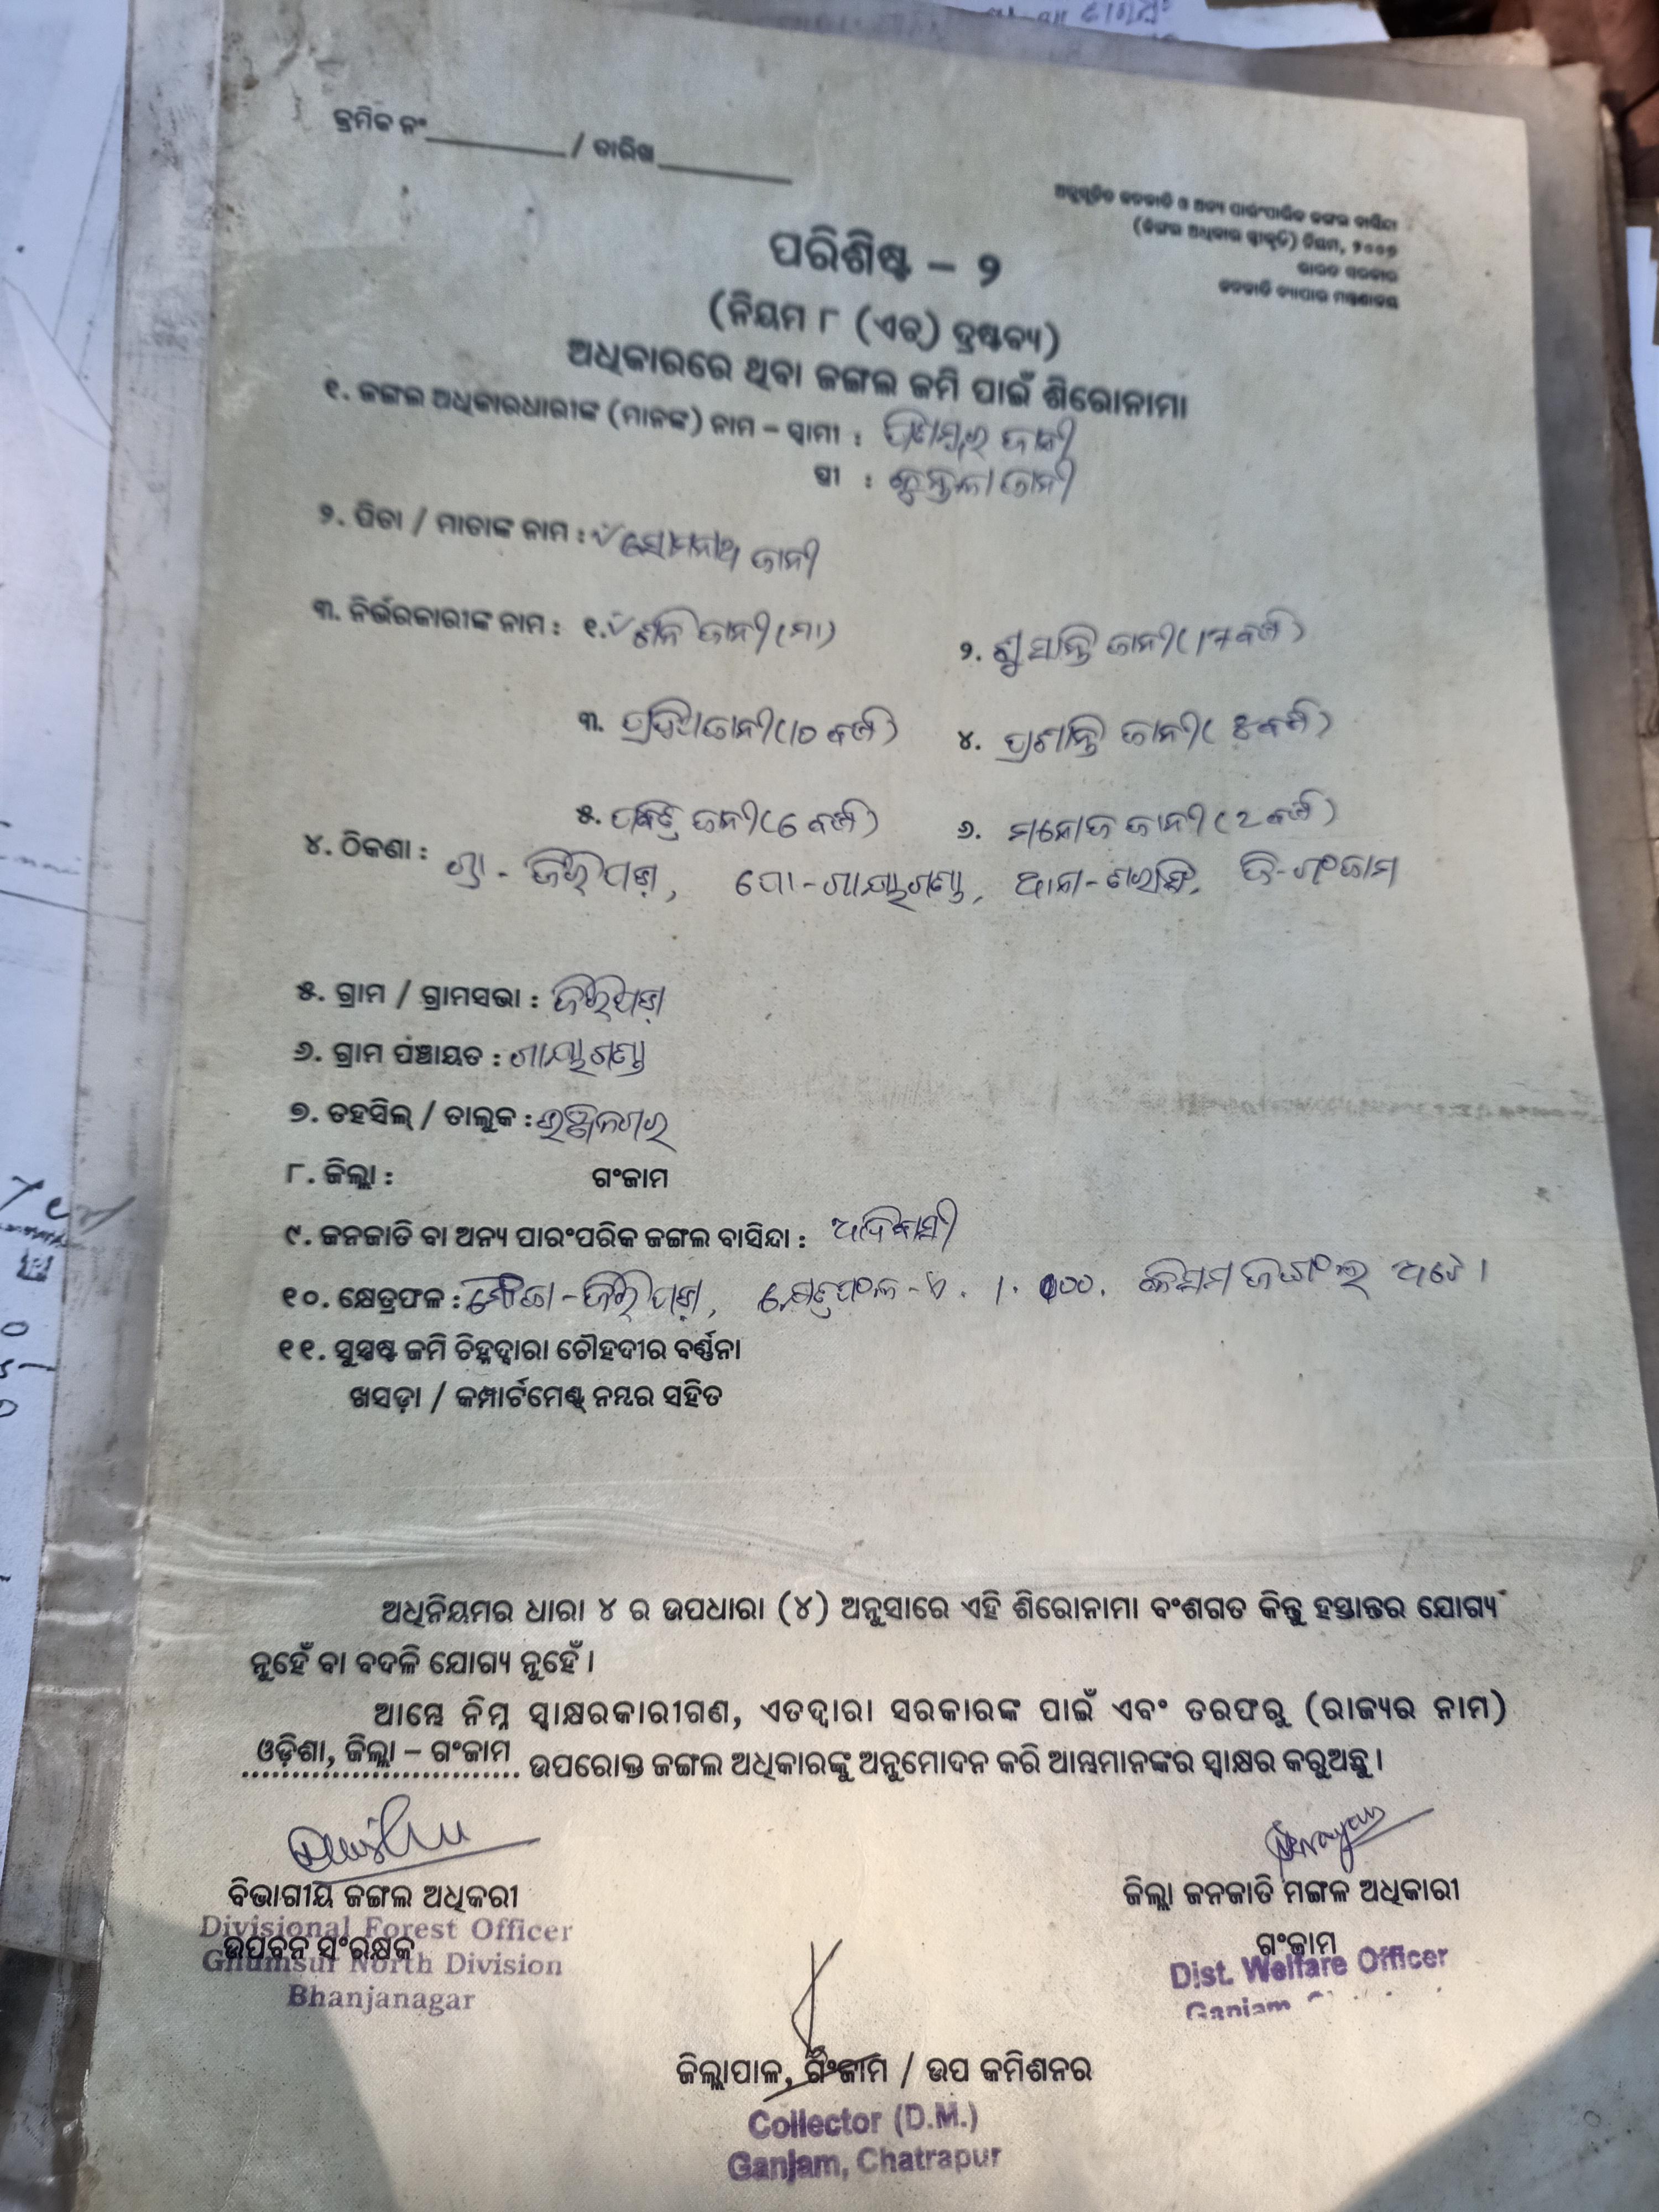 କ୍ରମିକ ନଂ / ତାରିଖ
ଅନୁସୂଚିତ ଜନଜାତି ଓ ଅନ୍ୟ ପାରଂପାରିକ ଜଙ୍ଗଲ ବାସିନ୍ଦା
(ଜଙ୍ଗଲ ଅଧିକାର ସ୍ୱୀକୃତି) ନିୟମ, ୨୦୦୭
ଭାରତ ସରକାର
ଜନଜାତି ବ୍ୟାପାର ମନ୍ତ୍ରଣାଳୟ
ପରିଶିଷ୍ଟ – ୨
(ନିୟମ ୮ (ଏଚ୍) ଦ୍ରଷ୍ଟବ୍ୟ)
ଅଧିକାରରେ ଥିବା ଜଙ୍ଗଲ ଜମି ପାଇଁ ଶିରୋନାମା
୧. ଜଙ୍ଗଲ ଅଧିକାରଧାରୀଙ୍କ (ମାନଙ୍କ) ନାମ – ସ୍ୱାମୀ : ପିତାମ୍ବର ଜାନୀ
ସ୍ତ୍ରୀ : କୁନ୍ତଳା ଜାନୀ
୨. ପିତା / ମାତାଙ୍କ ନାମ : ସୋମନାଥ ଜାନୀ
୩. ନିର୍ଭରକାରୀଙ୍କ ନାମ : ୧. ଜାନୀ (ମା) ୨. ସୁସାନ୍ତି ଜାନୀ (17 ବର୍ଷ)
୩. ଜାନୀ (10 ବର୍ଷ) ୪. ପ୍ରଶାନ୍ତି ଜାନୀ ( ବର୍ଷ)
୫. ପବିତ୍ର ଜାନୀ (6 ବର୍ଷ) ୬. ମନୋଜ ଜାନୀ (2 ବର୍ଷ)
୪. ଠିକଣା : ଗ୍ରା - ଜିରିପଡ଼ା, ପୋ - ଥାନା - ଜି - ଗଂଜାମ
୫. ଗ୍ରାମ / ଗ୍ରାମସଭା : ଜିରିପଡ଼ା
୬. ଗ୍ରାମ ପଞ୍ଚାୟତ :
୭. ତହସିଲ୍ / ତାଲୁକ : ଭଞ୍ଜନଗର
୮. ଜିଲ୍ଲା : ଗଂଜାମ
୯. ଜନଜାତି ବା ଅନ୍ୟ ପାରଂପରିକ ଜଙ୍ଗଲ ବାସିନ୍ଦା : ଆଦିବାସୀ
୧୦. କ୍ଷେତ୍ରଫଳ : ମୌଜା - ଜିରିପଡ଼ା, କ୍ଷେତ୍ରଫଳ - ଏ. 1. 000. କିସମ ଜଙ୍ଗଲ ଅଟେ ।
୧୧. ସୁସ୍ପଷ୍ଟ ଜମି ଚିହ୍ନଦ୍ୱାରା ଚୌହଦୀର ବର୍ଣ୍ଣନା
ଖସଡ଼ା / କମ୍ପାର୍ଟମେଣ୍ଟ୍ ନମ୍ବର ସହିତ
ଅଧିନିୟମର ଧାରା ୪ ର ଉପଧାରା (୪) ଅନୁସାରେ ଏହି ଶିରୋନାମା ବଂଶଗତ କିନ୍ତୁ ହସ୍ତାନ୍ତର ଯୋଗ୍ୟ
ନୁହେଁ ବା ବଦଳି ଯୋଗ୍ୟ ନୁହେଁ ।
ଆମ୍ଭେ ନିମ୍ନ ସ୍ୱାକ୍ଷରକାରୀଗଣ, ଏତଦ୍ୱାରା ସରକାରଙ୍କ ପାଇଁ ଏବଂ ତରଫରୁ (ରାଜ୍ୟର ନାମ)
ଓଡ଼ିଶା, ଜିଲ୍ଲା – ଗଂଜାମ ଉପରୋକ୍ତ ଜଙ୍ଗଲ ଅଧିକାରଙ୍କୁ ଅନୁମୋଦନ କରି ଆମ୍ଭମାନଙ୍କର ସ୍ୱାକ୍ଷର କରୁଅଛୁ ।
ବିଭାଗୀୟ ଜଙ୍ଗଲ ଅଧିକରୀ
Divisional Forest Officer
ଉପବନ ସଂରକ୍ଷକ
Ghumsur North Division
Bhanjanagar
ଜିଲ୍ଲା ଜନଜାତି ମଙ୍ଗଳ ଅଧିକାରୀ
ଗଂଜାମ
Dist. Welfare Officer
Ganjam
ଜିଲ୍ଲାପାଳ, ଗଂଜାମ / ଉପ କମିଶନର
Collector (D.M.)
Ganjam, Chatrapur